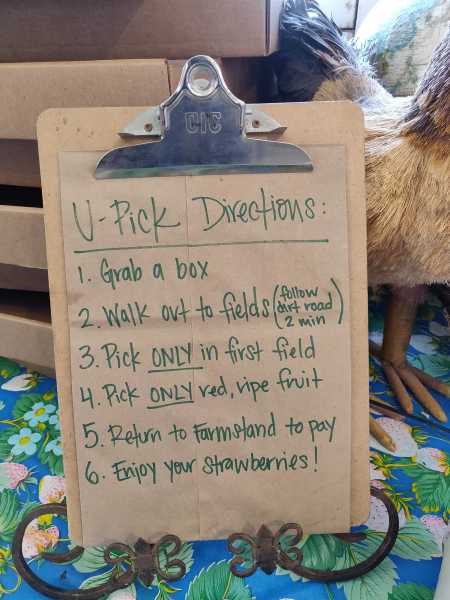 CIC
U-Pick Directions:
1. Grab a box
2. Walk out to fields (follow dirt road 2 min)
3. Pick ONLY in first field
4. Pick ONLY red, ripe fruit
5. Return to Farmstand to pay
6. Enjoy your strawberries!